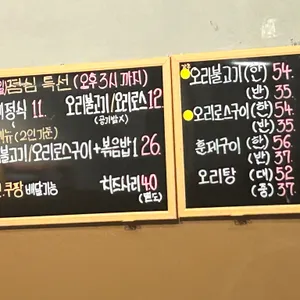 점심 특선 (오후 3시 까지)
정식 11. 오리불고기/오리로스 12
(공기밥X)
메뉴 (2인기준)
불고기/오리로스구이+볶음밥1 26.
쿠팡 배달가능 치즈사리 4.0
(별도)
오리불고기 (한) 54.
(반) 35
오리로스구이 (한) 54.
(반) 35
훈제구이 (한) 56
(반) 37.
오리탕 (대) 52
(중) 37